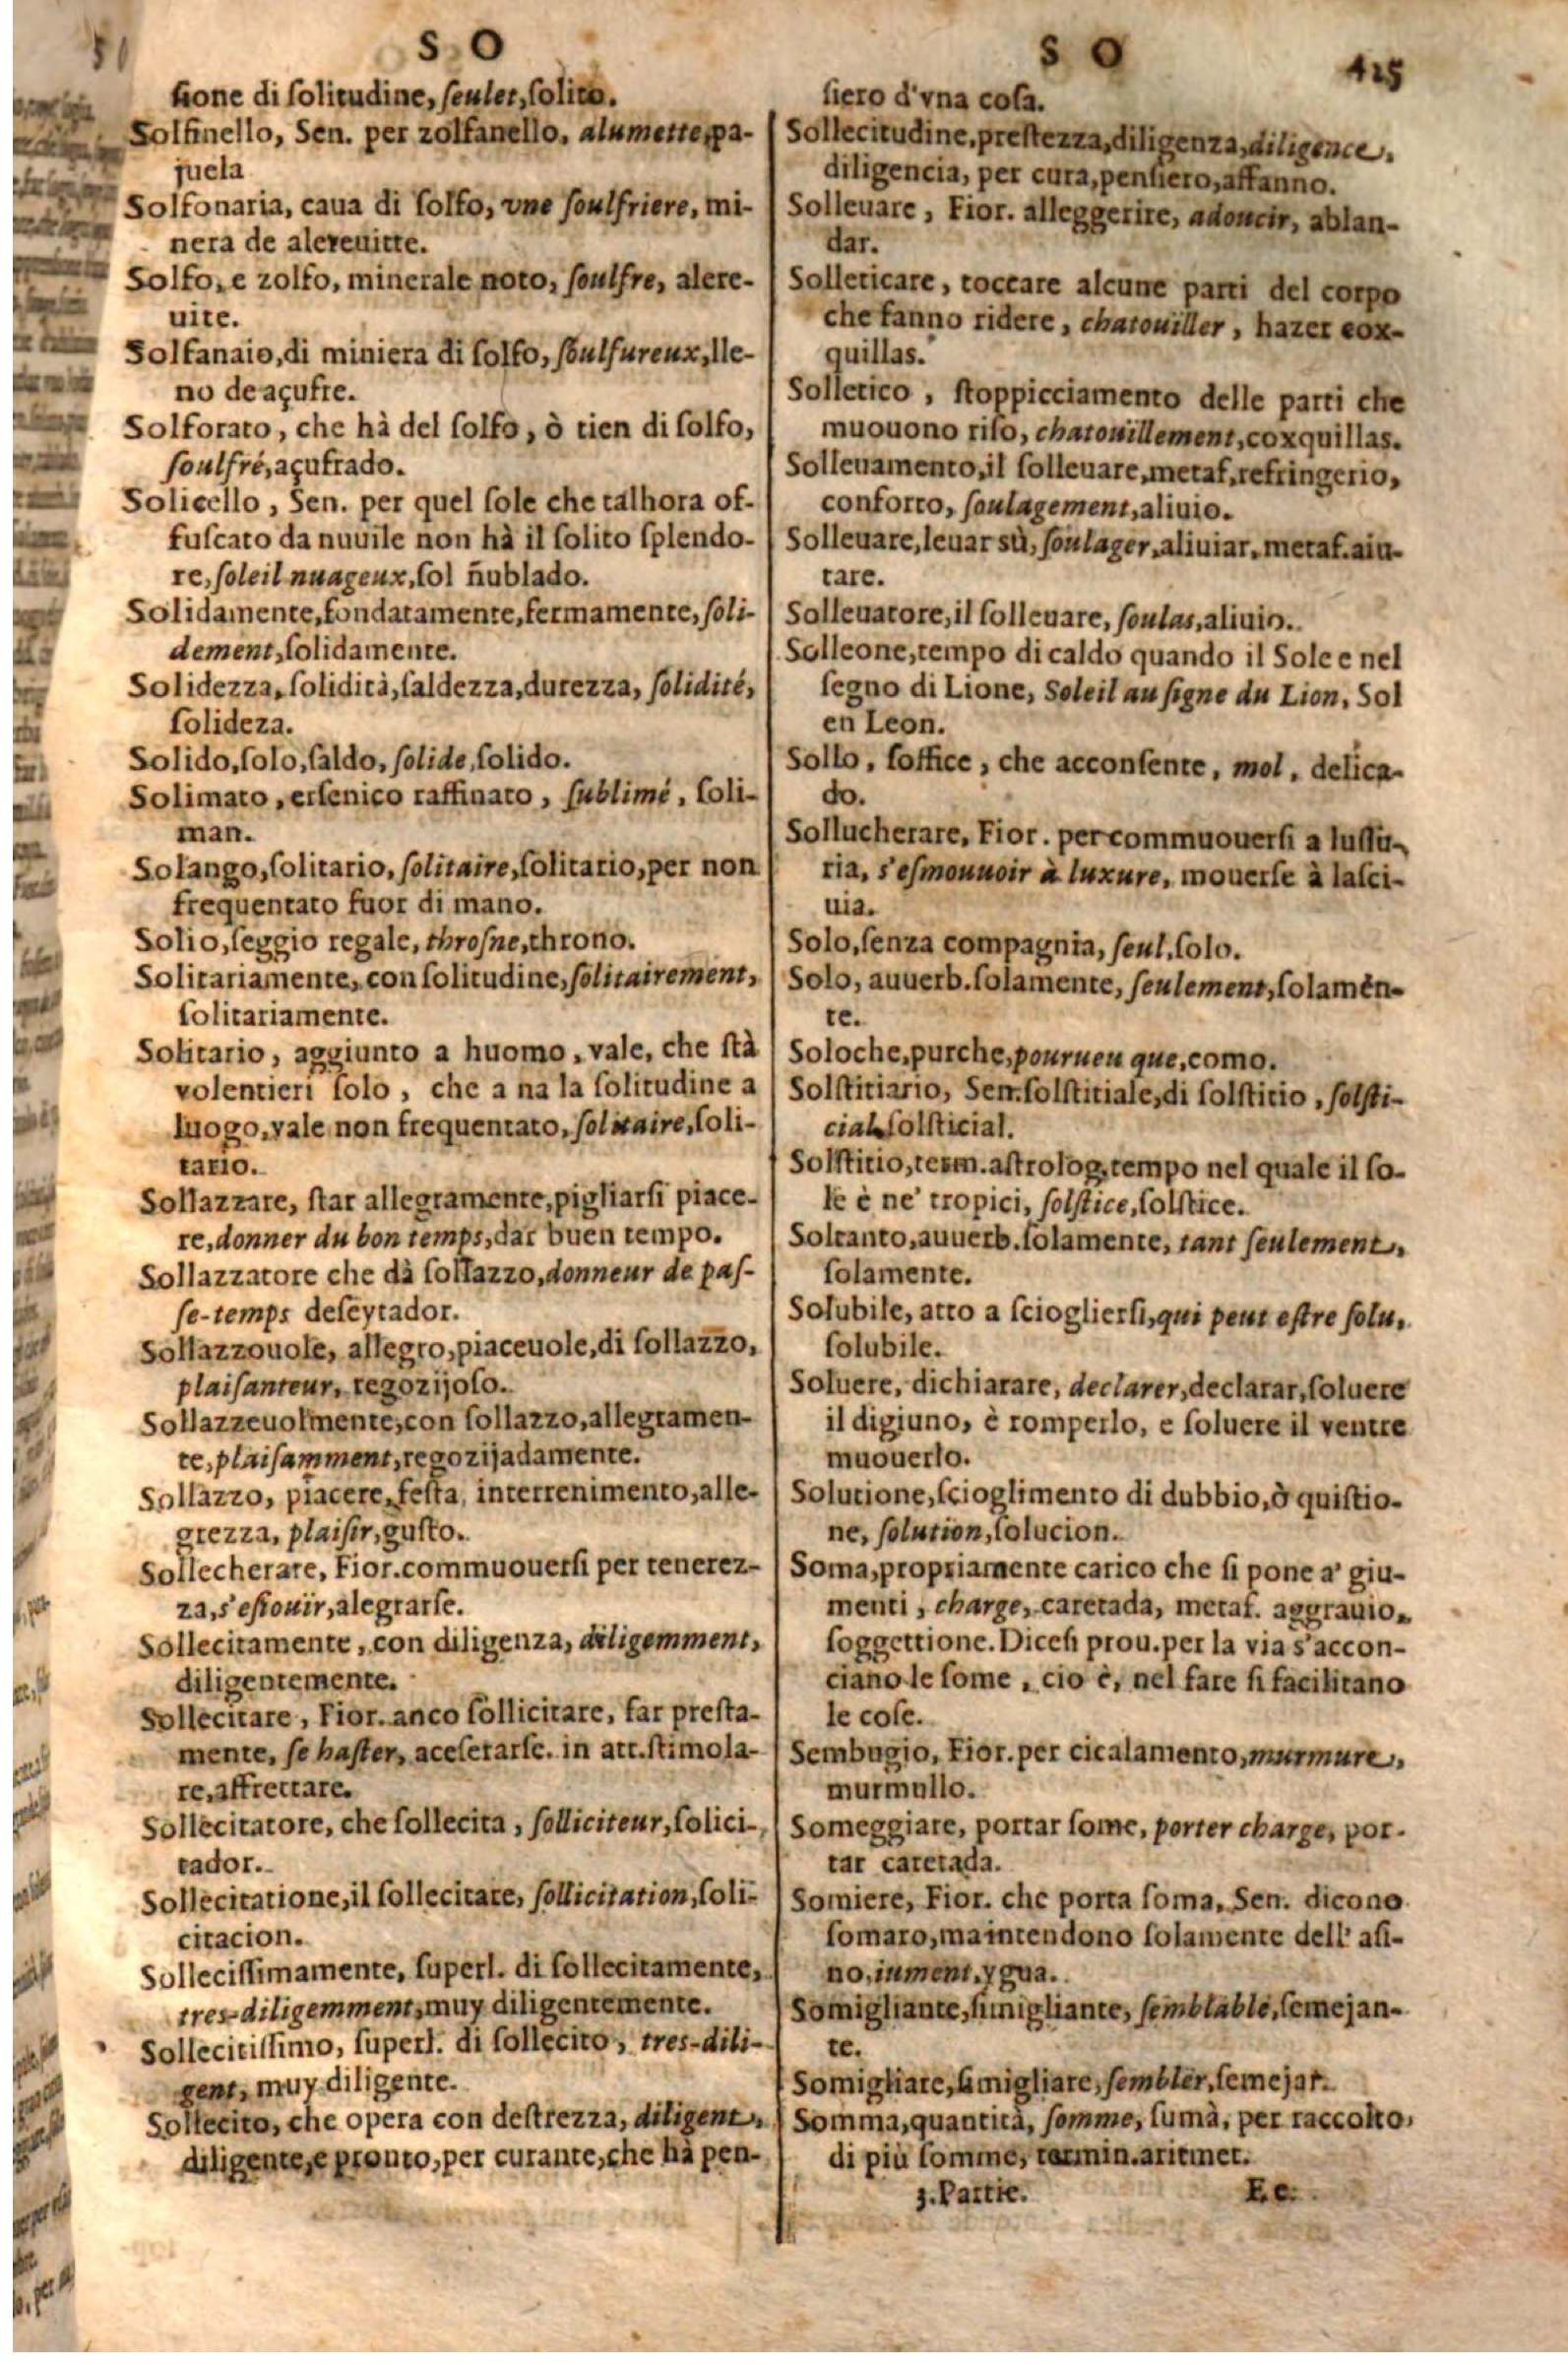 S O
ſione di ſolitudine, ſeulet, ſolito.
Solfinello, Sen. per zolfanello, alumette, pa-
juela
Solfonaria, caua di ſolfo, vne ſoulfriere, mi-
nera de alereuitte.
Solfo, e zolfo, minerale noto, ſoulfre, alere-
uite.
Solfanaio, di miniera di ſolfo, ſoulfureux, lle-
no de açufre.
Solforato, che hà del ſolfo, ò tien di ſolfo,
ſoulfré, açufrado.
Solicello, Sen. per quel ſole che talhora of-
fuſcato da nuuile non hà il ſolito ſplendo-
re, ſoleil nuageux, ſol ñublado.
Solidamente, fondatamente, fermamente, ſoli-
dement, ſolidamente.
Solidezza, ſolidità, ſaldezza, durezza, ſolidité,
ſolideza.
Solido, ſolo, ſaldo, ſolide, ſolido.
Solimato, erſenico raffinato, ſublimé, ſoli-
man.
Solango, ſolitario, ſolitaire, ſolitario, per non
frequentato fuor di mano.
Solio, ſeggio regale, throſne, throno.
Solitariamente, con ſolitudine, ſolitairement,
ſolitariamente.
Solitario, aggiunto a huomo, vale, che ſtà
volentieri ſolo, che a na la ſolitudine a
luogo, vale non frequentato, ſolitaire, ſoli-
tario.
Sollazzare, ſtar allegramente, pigliarſi piace-
re, donner du bon temps, dar buen tempo.
Sollazzatore che dà ſollazzo, donneur de paſ-
ſe-temps deſeytador.
Sollazzouole, allegro, piaceuole, di ſollazzo,
plaiſanteur, regozijoſo.
Sollazzeuolmente, con ſollazzo, allegramen-
te, plaiſamment, regozijadamente.
Sollazzo, piacere, feſta, interrenimento, alle-
grezza, plaiſir, guſto.
Sollecherare, Fior. commuouerſi per tenerez-
za, s'eſiouïr, alegrarſe.
Sollecitamente, con diligenza, diligemment,
diligentemente.
Sollecitare, Fior. anco ſollicitare, far preſta-
mente, ſe haſter, aceſerarſe. in att. ſtimola-
re, affrettare.
Sollecitatore, che ſollecita, ſolliciteur, ſolici-
tador.
Sollecitatione, il ſollecitare, ſollicitation, ſoli-
citacion.
Sollecisſimamente, ſuperl. di ſollecitamente,
tres-diligemment, muy diligentemente.
Sollecitiſſimo, ſuperl. di ſollecito, tres-dili-
gent, muy diligente.
Sollecito, che opera con deſtrezza, diligent,
diligente, e pronto, per curante, che hà pen-
S O
425
ſiero d'vna coſa.
Sollecitudine, preſtezza, diligenza, diligence,
diligencia, per cura, penſiero, affanno.
Solleuare, Fior. alleggerire, adoucir, ablan-
dar.
Solleticare, toccare alcune parti del corpo
che fanno ridere, chatouiller, hazer cox-
quillas.
Solletico, ſtoppicciamento delle parti che
muouono riſo, chatouillement, coxquillas.
Solleuamento, il ſolleuare, metaf. refringerio,
conforto, ſoulagement, aliuio.
Solleuare, leuar sù, ſoulager, aliuiar. metaf. aiu-
tare.
Solleuatore, il ſolleuare, ſoulas, aliuio.
Solleone, tempo di caldo quando il Sole e nel
ſegno di Lione, Soleil au ſigne du Lion, Sol
en Leon.
Sollo, ſoffice, che acconſente, mol, delica-
do.
Sollucherare, Fior. per commuouerſi a luſſu-
ria, s'eſmouuoir à luxure, mouerſe à laſci-
uia.
Solo, ſenza compagnia, ſeul, ſolo.
Solo, auuerb. ſolamente, ſeulement, ſolamen-
te.
Soloche, purche, pourueu que, como.
Solſtitiario, Sen. ſolſtitiale, di ſolſtitio, ſolſti-
cial, ſolſticial.
Solſtitio, term. aſtrolog. tempo nel quale il ſo-
le è ne' tropici, ſolſtice, ſolſtice.
Soltanto, auuerb. ſolamente, tant ſeulement,
ſolamente.
Solubile, atto a ſcioglierſi, qui peut eſtre ſolu,
ſolubile.
Soluere, dichiarare, declarer, declarar, ſoluere
il digiuno, è romperlo, e ſoluere il ventre
muouerlo.
Solutione, ſcioglimento di dubbio, ò quiſtio-
ne, ſolution, ſolucion.
Soma, propriamente carico che ſi pone a' giu-
menti, charge, caretada, metaf. aggrauio,
ſoggettione. Diceſi prou. per la via s'accon-
ciano le ſome, cio è, nel fare ſi facilitano
le coſe.
Sembugio, Fior. per cicalamento, murmure,
murmullo.
Someggiare, portar ſome, porter charge, por-
tar caretada.
Somiere, Fior. che porta ſoma, Sen. dicono
ſomaro, ma intendono ſolamente dell' aſi-
no, iument, ygua.
Somigliante, ſimigliante, ſemblable, ſemejan-
te.
Somigliare, ſimigliare, ſembler, ſemejar.
Somma, quantità, ſomme, ſumà, per raccolto
di più ſomme, termin. aritmet.
3. Partie. E e